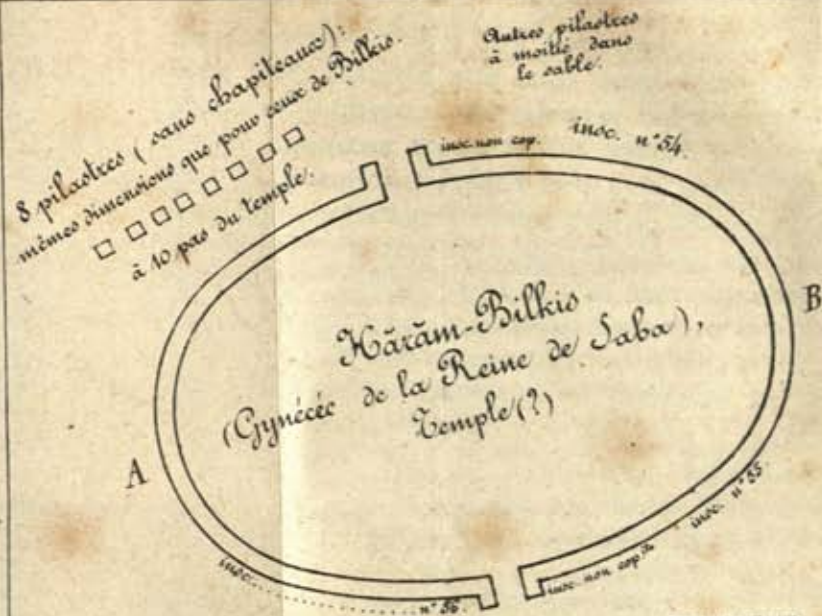 8 pilastres (sans chapiteaux):
mêmes dimensions que pour ceux de Bilkis.
à 10 pas du temple:
Autres pilastres
à moitié dans
le sable.
insc. non cop.
insc. n° 54.
Hārām-Bilkis
(Gynécée de la Reine de Saba),
Temple (?)
A
B
insc. n° 55
insc. non cop.
insc. n° 56.